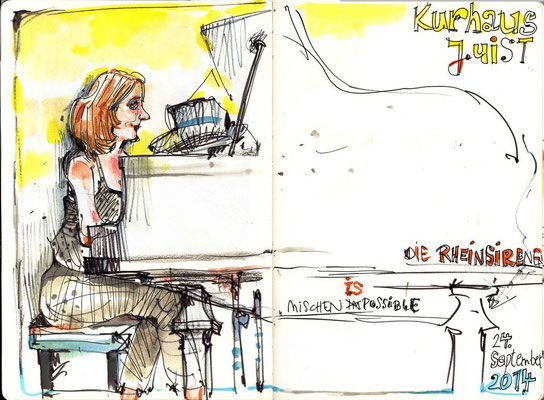 Kurhaus
Juist
DIE RHEINSIRENEN
is
MISCHEN POSSIBLE
24.
September
2014